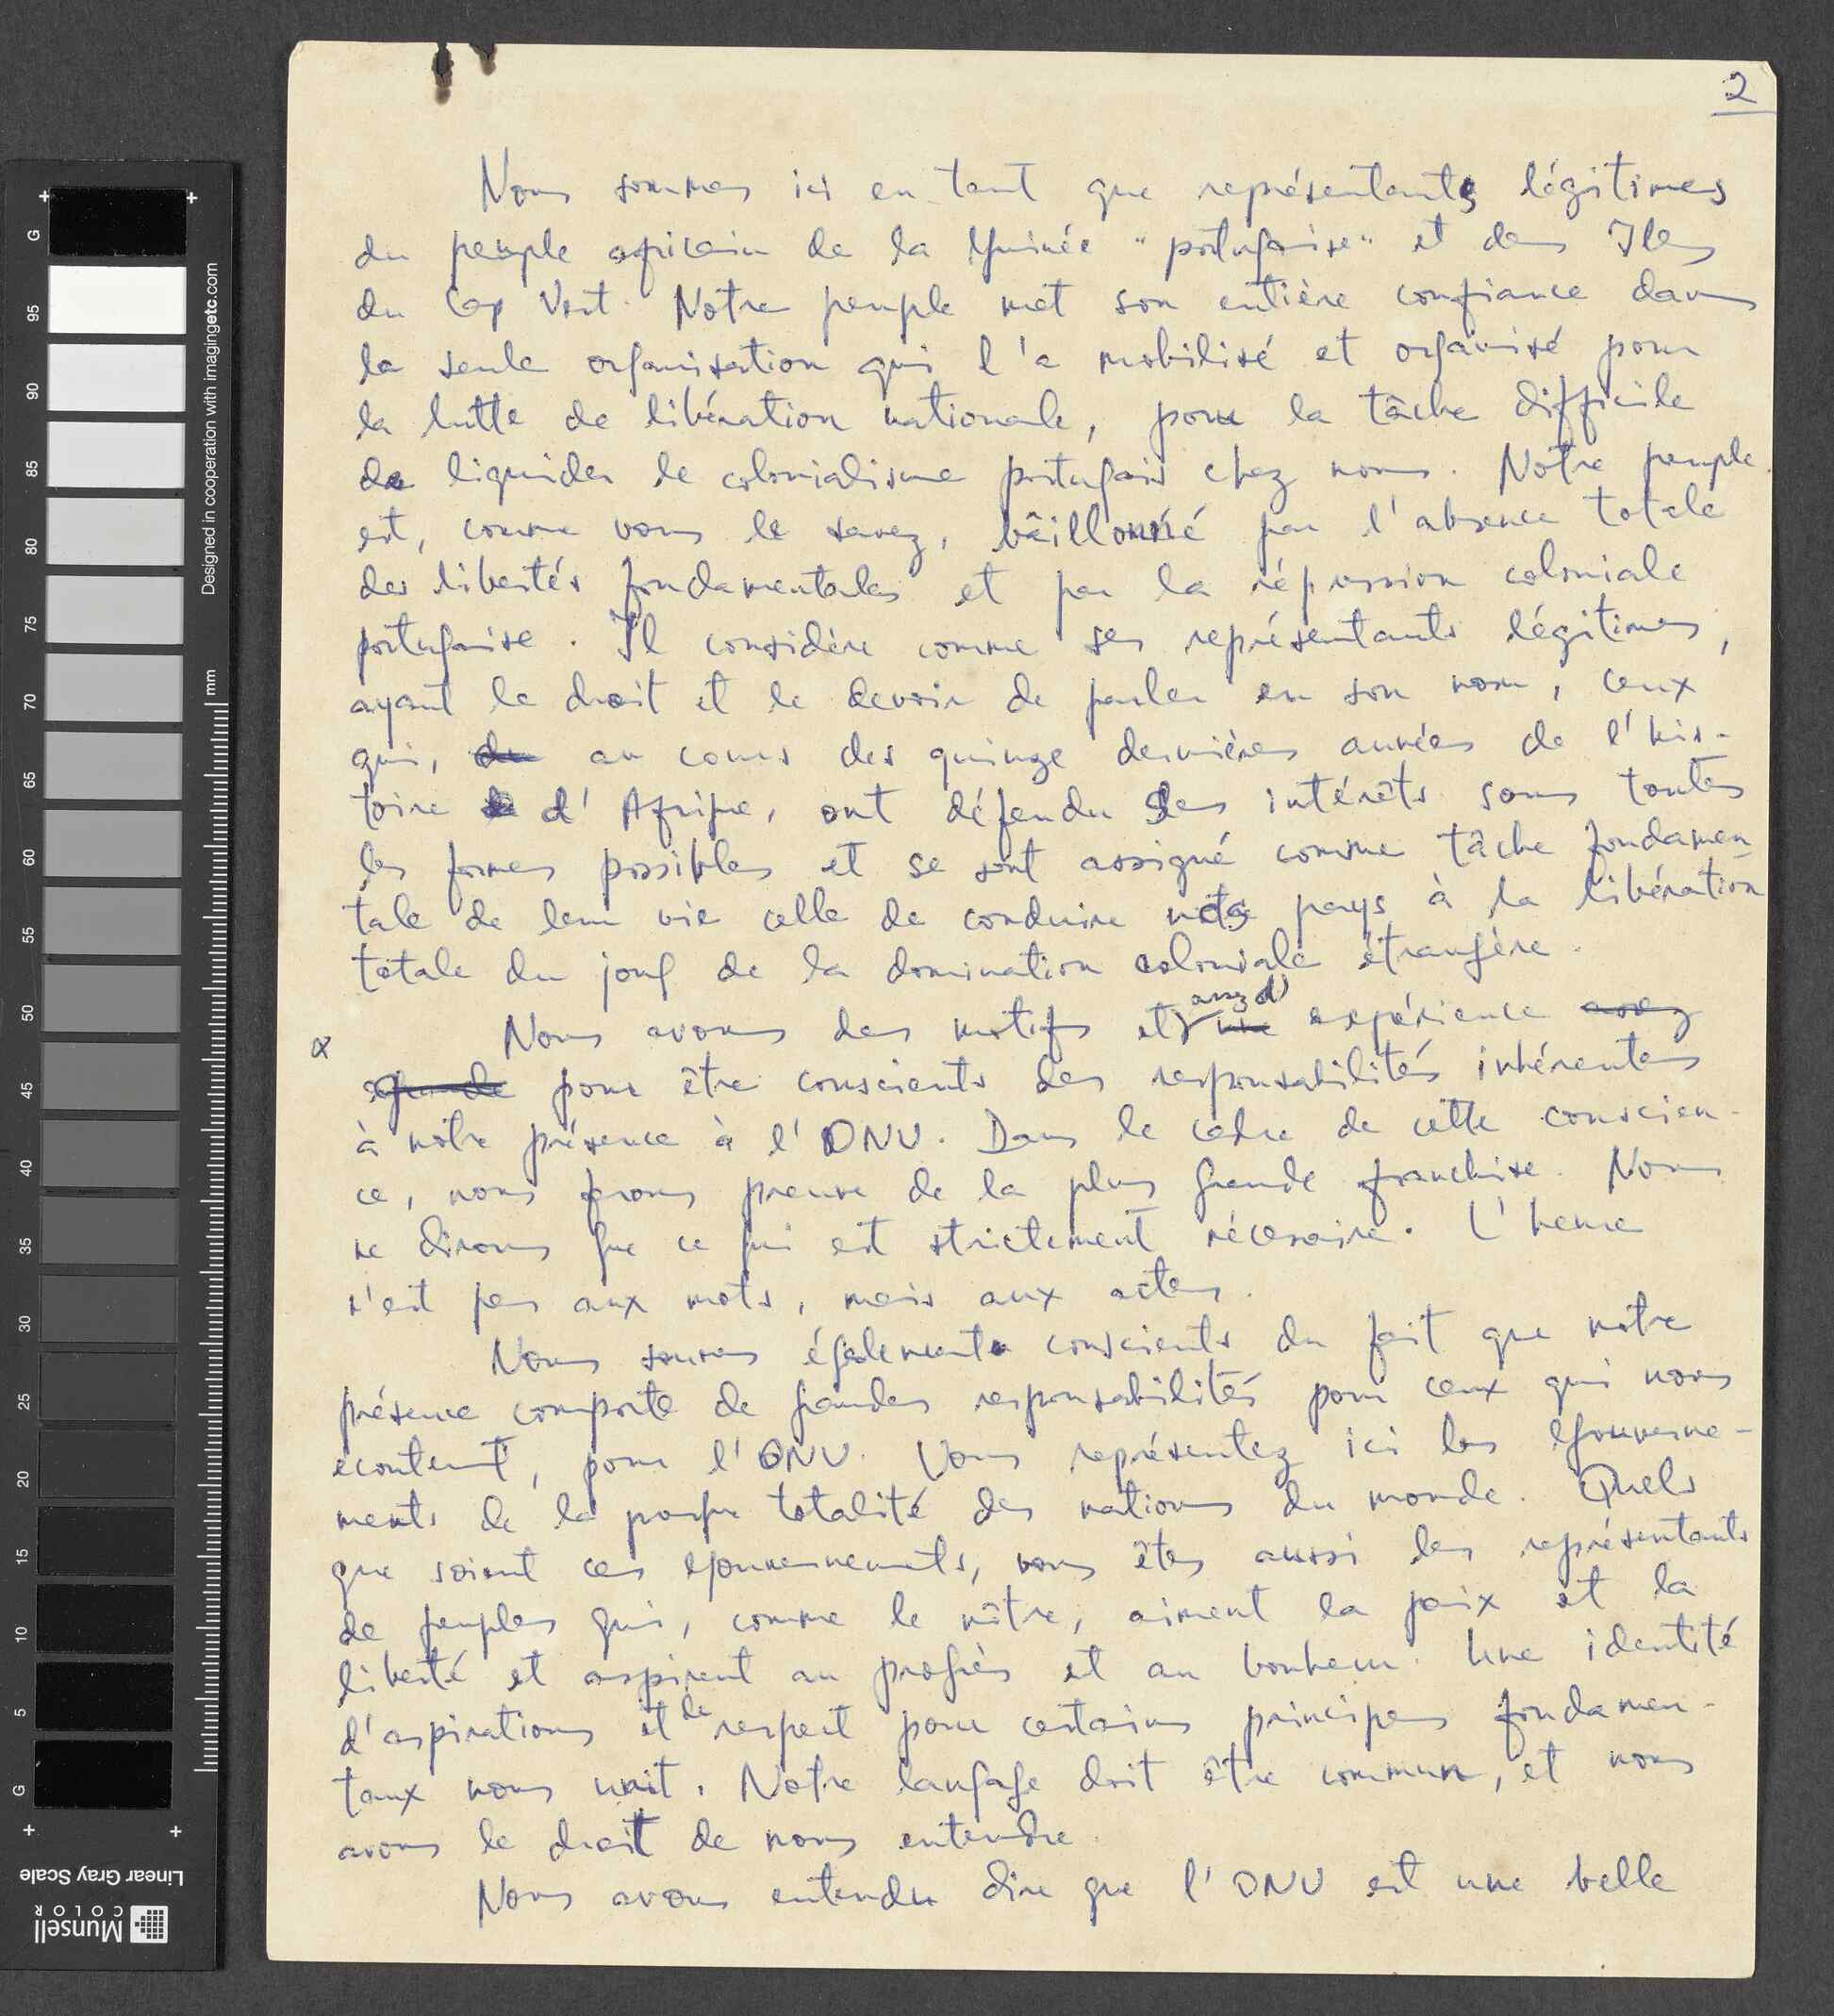 2
Nous sommes ici en tant que représentants légitimes
du peuple africain de la Guinée "portugaise" et des Iles
du Cap Vert. Notre peuple met son entière confiance dans
la seule organisation qui l'a mobilisé et organisé pour
la lutte de libération nationale, pour la tâche difficile
de liquider le colonialisme portugais chez nous. Notre peuple
est, comme vous le savez, bâillonné par l'absence totale
des libertés fondamentales et par la répression coloniale
portugaise. Il considère comme ses représentants légitimes,
ayant le droit et le devoir de parler en son nom, ceux
qui, du au cours des quinze dernières années de l'his-
toire d'Afrique, ont défendu ses intérêts sous toutes
les formes possibles et se sont assigné comme tâche fondamen-
tale de leur vie celle de conduire nos pays à la libération
totale du joug de la domination coloniale étrangère.
assez d'
Nous avons des motifs et une expérience assez
x grande pour être conscients des responsabilités inhérentes
à notre présence à l'ONU. Dans le cadre de cette conscien-
ce, nous ferons preuve de la plus grande franchise. Nous
ne dirons que ce qui est strictement nécessaire. L'heure
n'est pas aux mots, mais aux actes.
Nous sommes également conscients du fait que notre
présence comporte de grandes responsabilités pour ceux qui nous
écoutent, pour l'ONU. Vous représentez ici les Gouverne-
ments de la presque totalité des nations du monde. Quels
que soient ces Gouvernements, vous êtes aussi les représentants
de peuples qui, comme le nôtre, aiment la paix et la
liberté et aspirent au progrès et au bonheur. Une identité
d'aspirations et le respect pour certains principes fondamen-
taux nous unit. Notre langage doit être commun, et nous
avons le droit de nous entendre.
Nous avons entendu dire que l'ONU est une belle
Designed in cooperation with imagingetc.com
mm
G 95 90 85 80 75 70 65 60 55 50 45 40 35 30 25 20 15 10 5 G
Linear Gray Scale
Munsell
COLOR